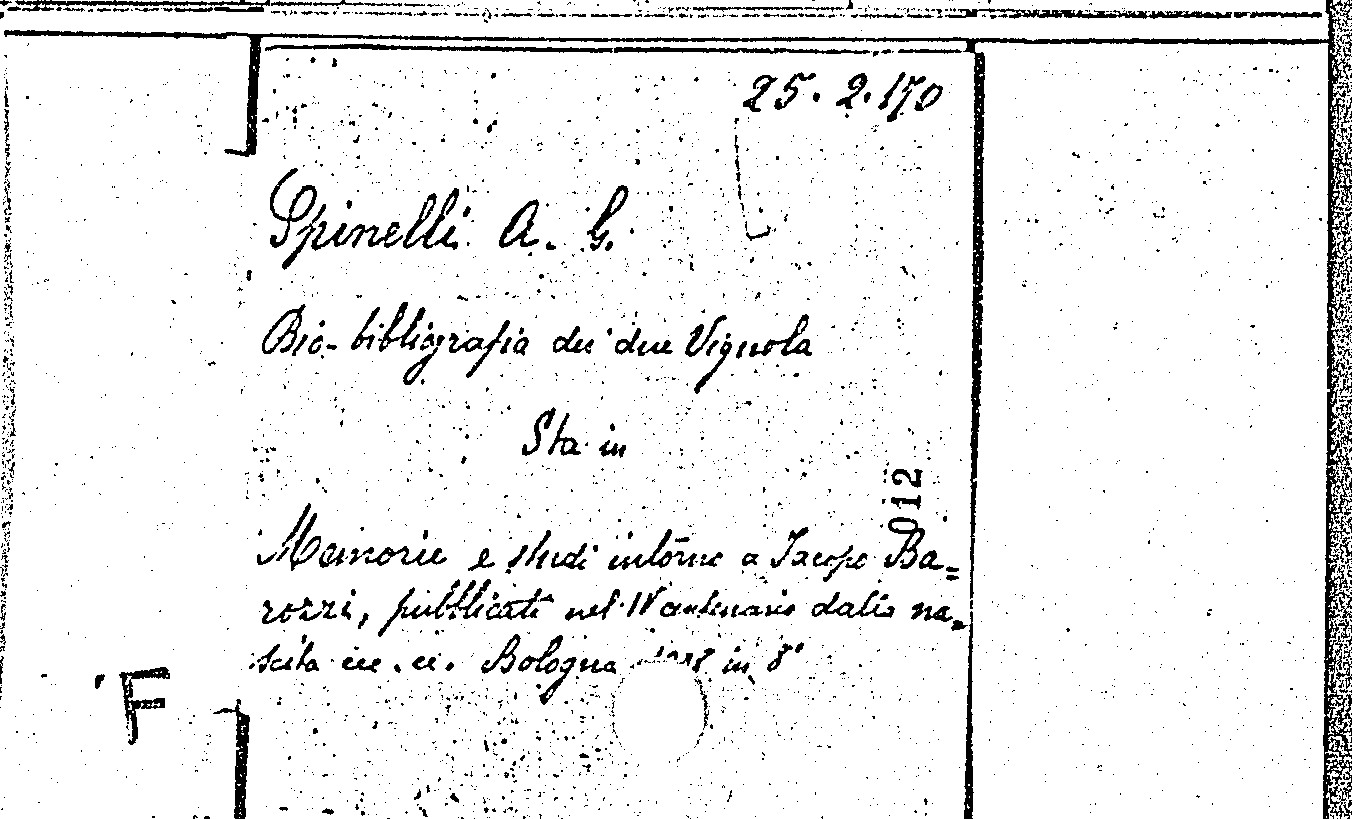 25. 2. 170
Spinelli A. G.
Bio-bibliografia dei due Vignola
Sta in
012
Memorie e studi intorno a Jacopo Ba=
rozzi, pubblicati nel IV centenario dalla na=
scita Bologna in 8°
F